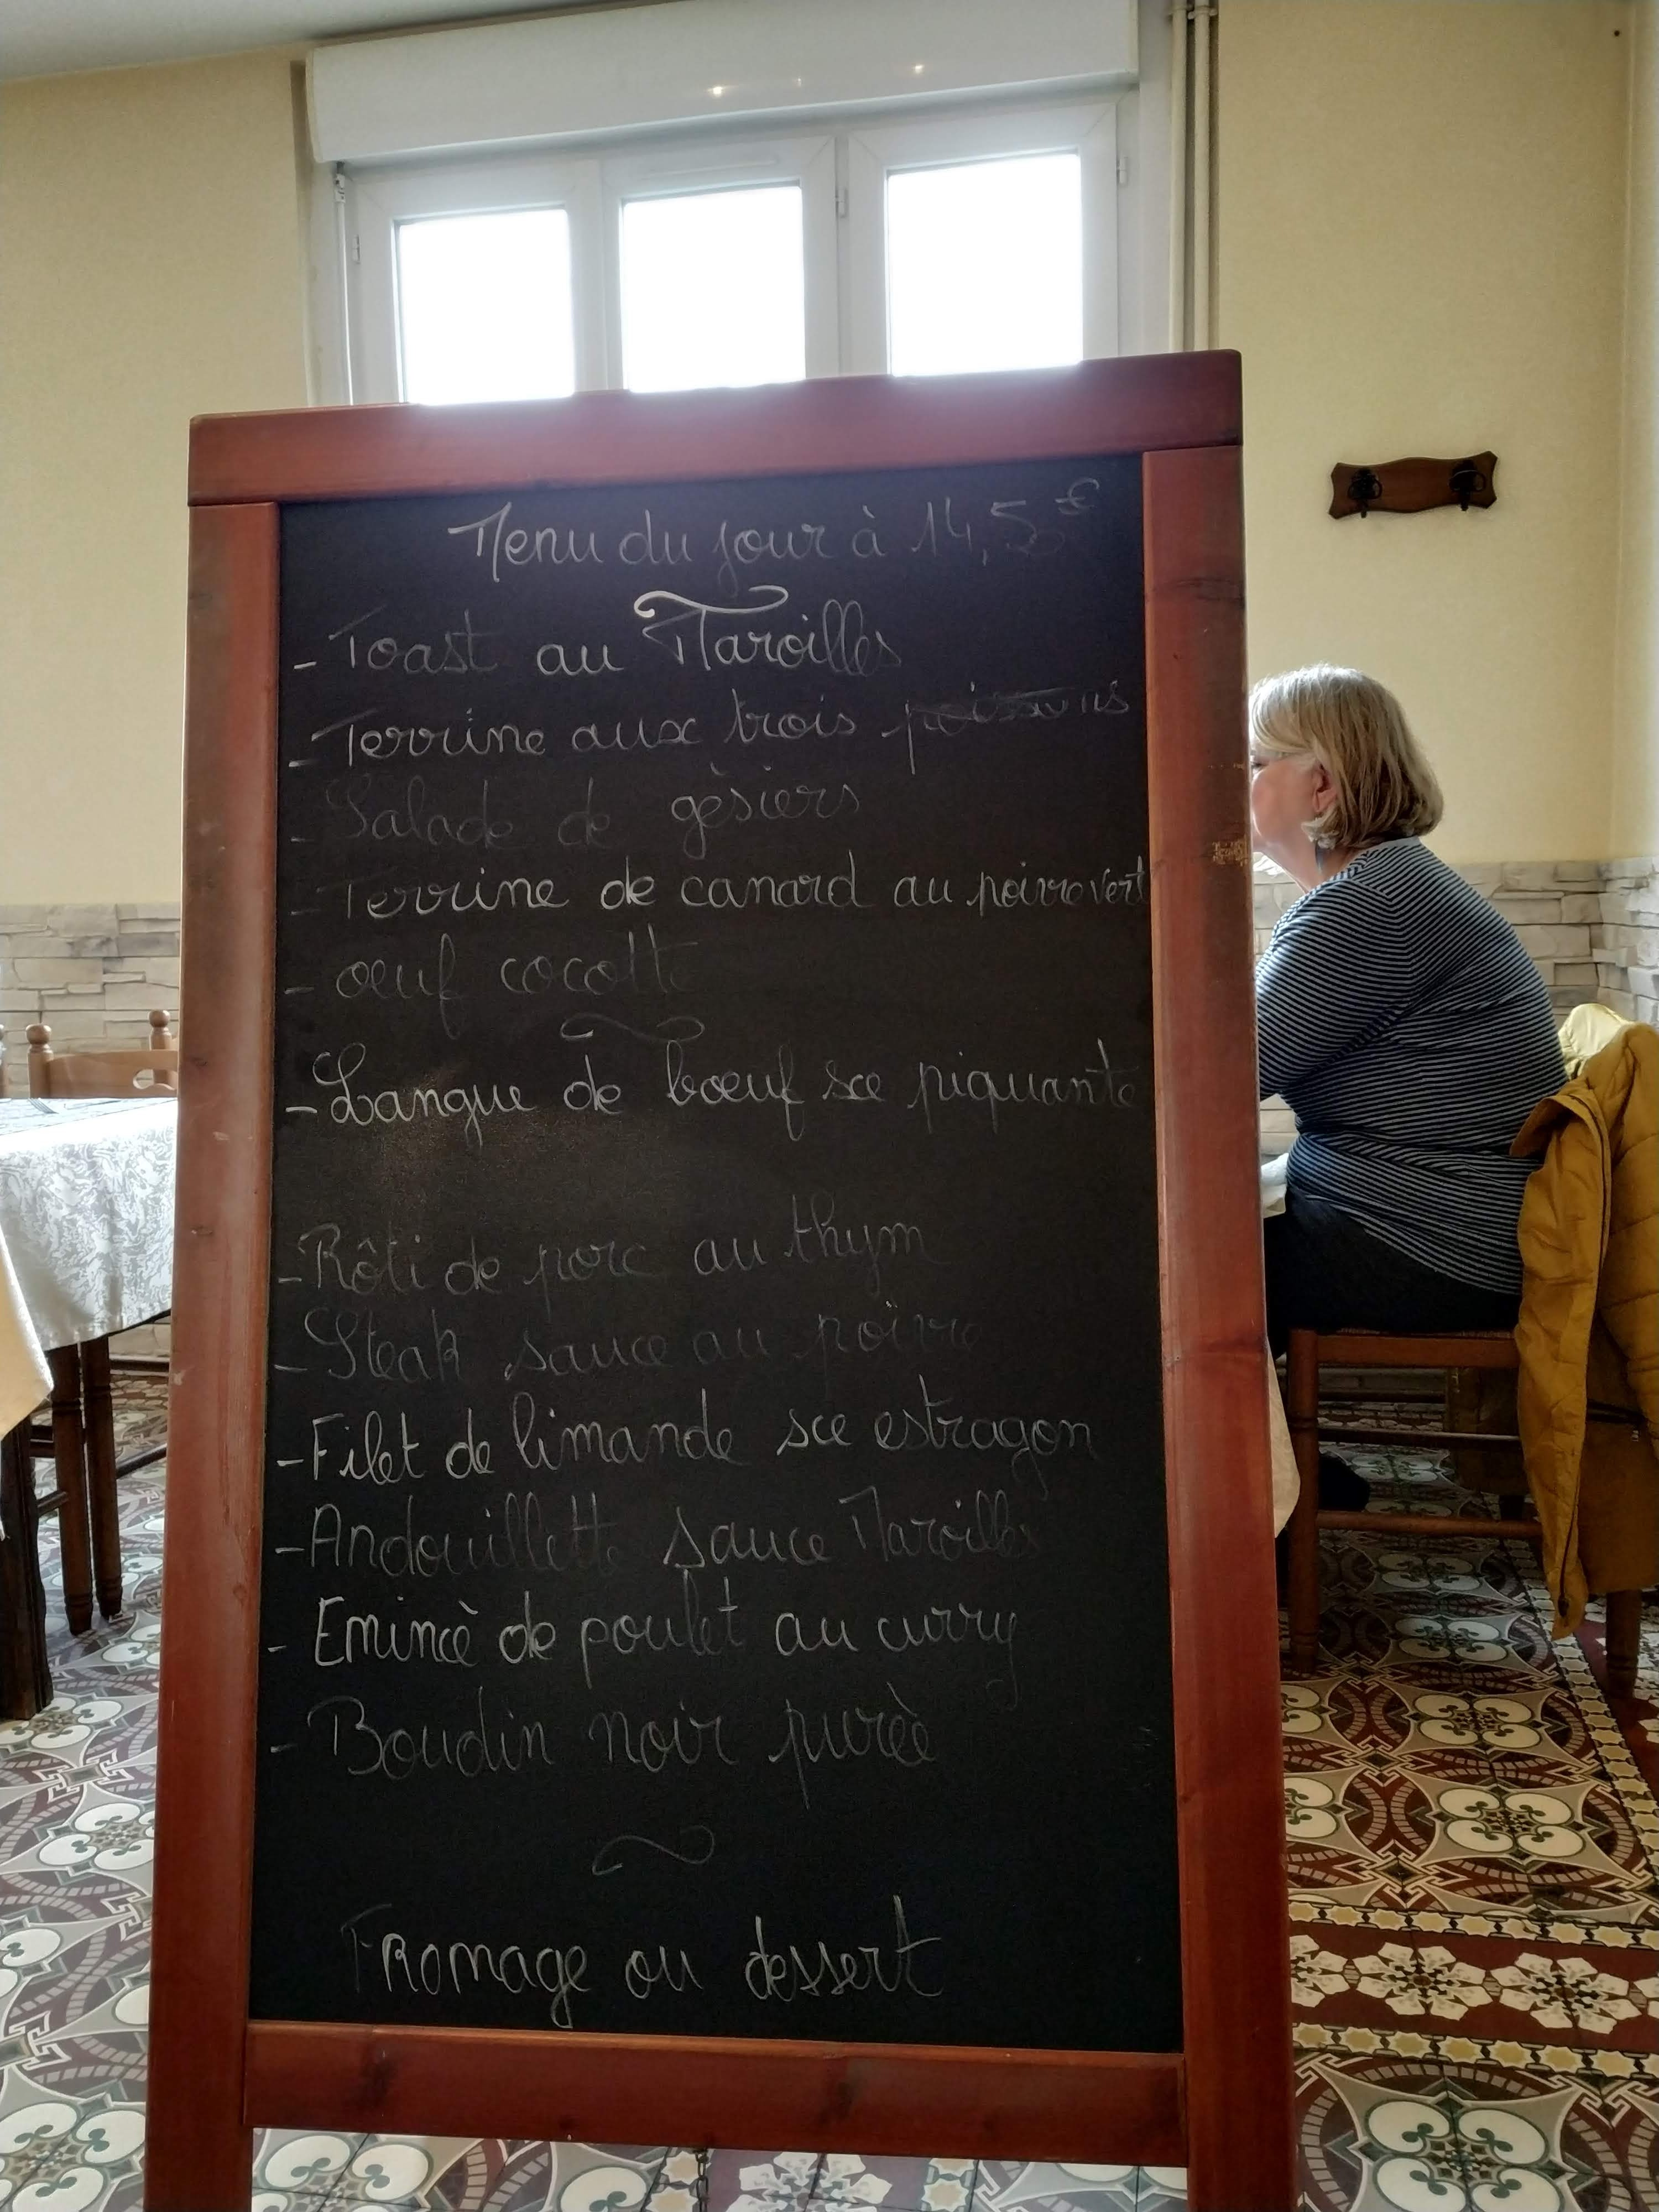 Menu du jour à 14,50€
- Toast au Maroilles
- Terrine aux trois poissons
- Salade de gèsiers
- Terrine de canard au poivre vert
- œuf cocotte
- Langue de bœuf sce piquante
- Rôti de porc au thym
- Steak sauce au poivre
- Filet de limande sce estragon
- Andouillette sauce Maroilles
- Emincè de poulet au curry
- Boudin noir purèe
Fromage ou dessert